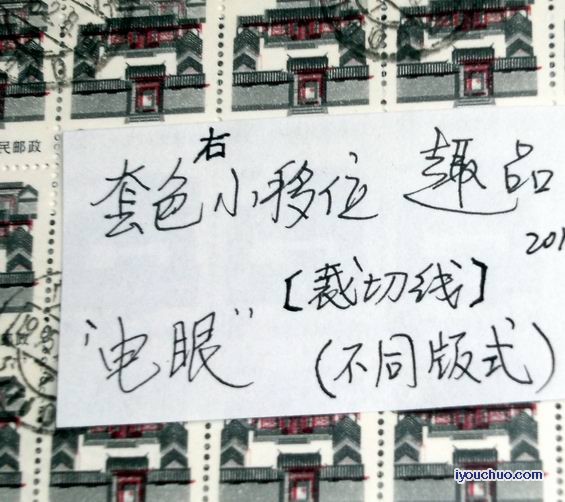 民邮政
右
套色小移位 趣品
201
[裁切线]
"电眼" (不同版式)
iyouchuo.com